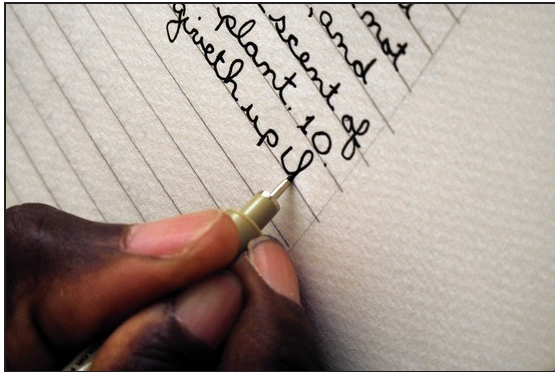 not
, and
scent of
plant. 10.
giveth up